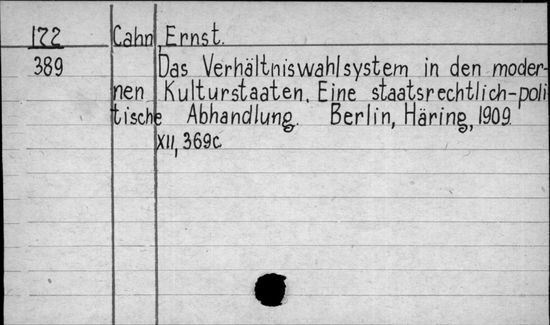 172 Cahn, Ernst.
389 Das Verhältniswahlsystem in den moder-
nen Kulturstaaten. Eine staatsrechtlich-poli
tische Abhandlung. Berlin, Häring, 1909.
XII, 369c.